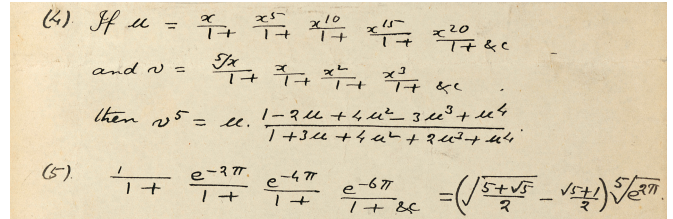 (4) If u = x/1+ x^5/1+ x^10/1+ x^15/1+ x^20/1+ &c
and v = ⁵√x/1+ x/1+ x²/1+ x³/1+ &c
then v⁵ = u. (1 − 2u + 4u² − 3u³ + u⁴)/(1 + 3u + 4u² + 2u³ + u⁴).
(5) 1/1+ e^−2π/1+ e^−4π/1+ e^−6π/1+ &c = (√((5+√5)/2) − (√5+1)/2) ⁵√(e^2π).